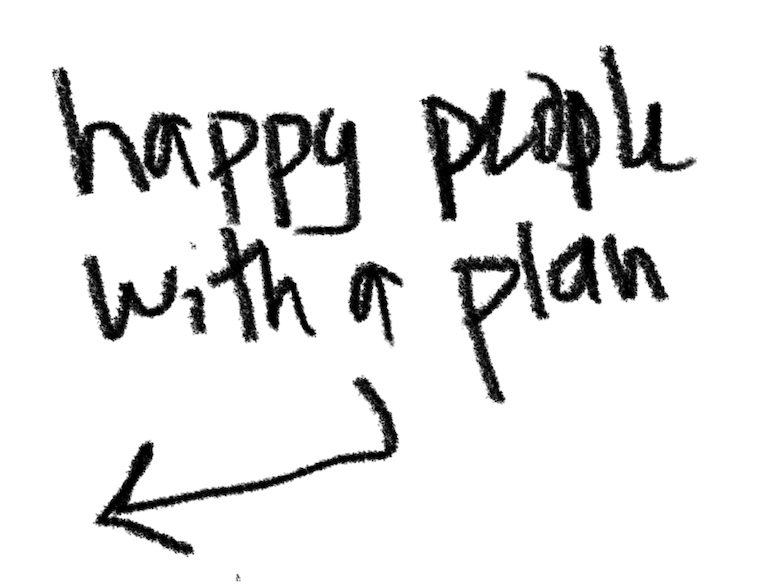 happy people
with a plan